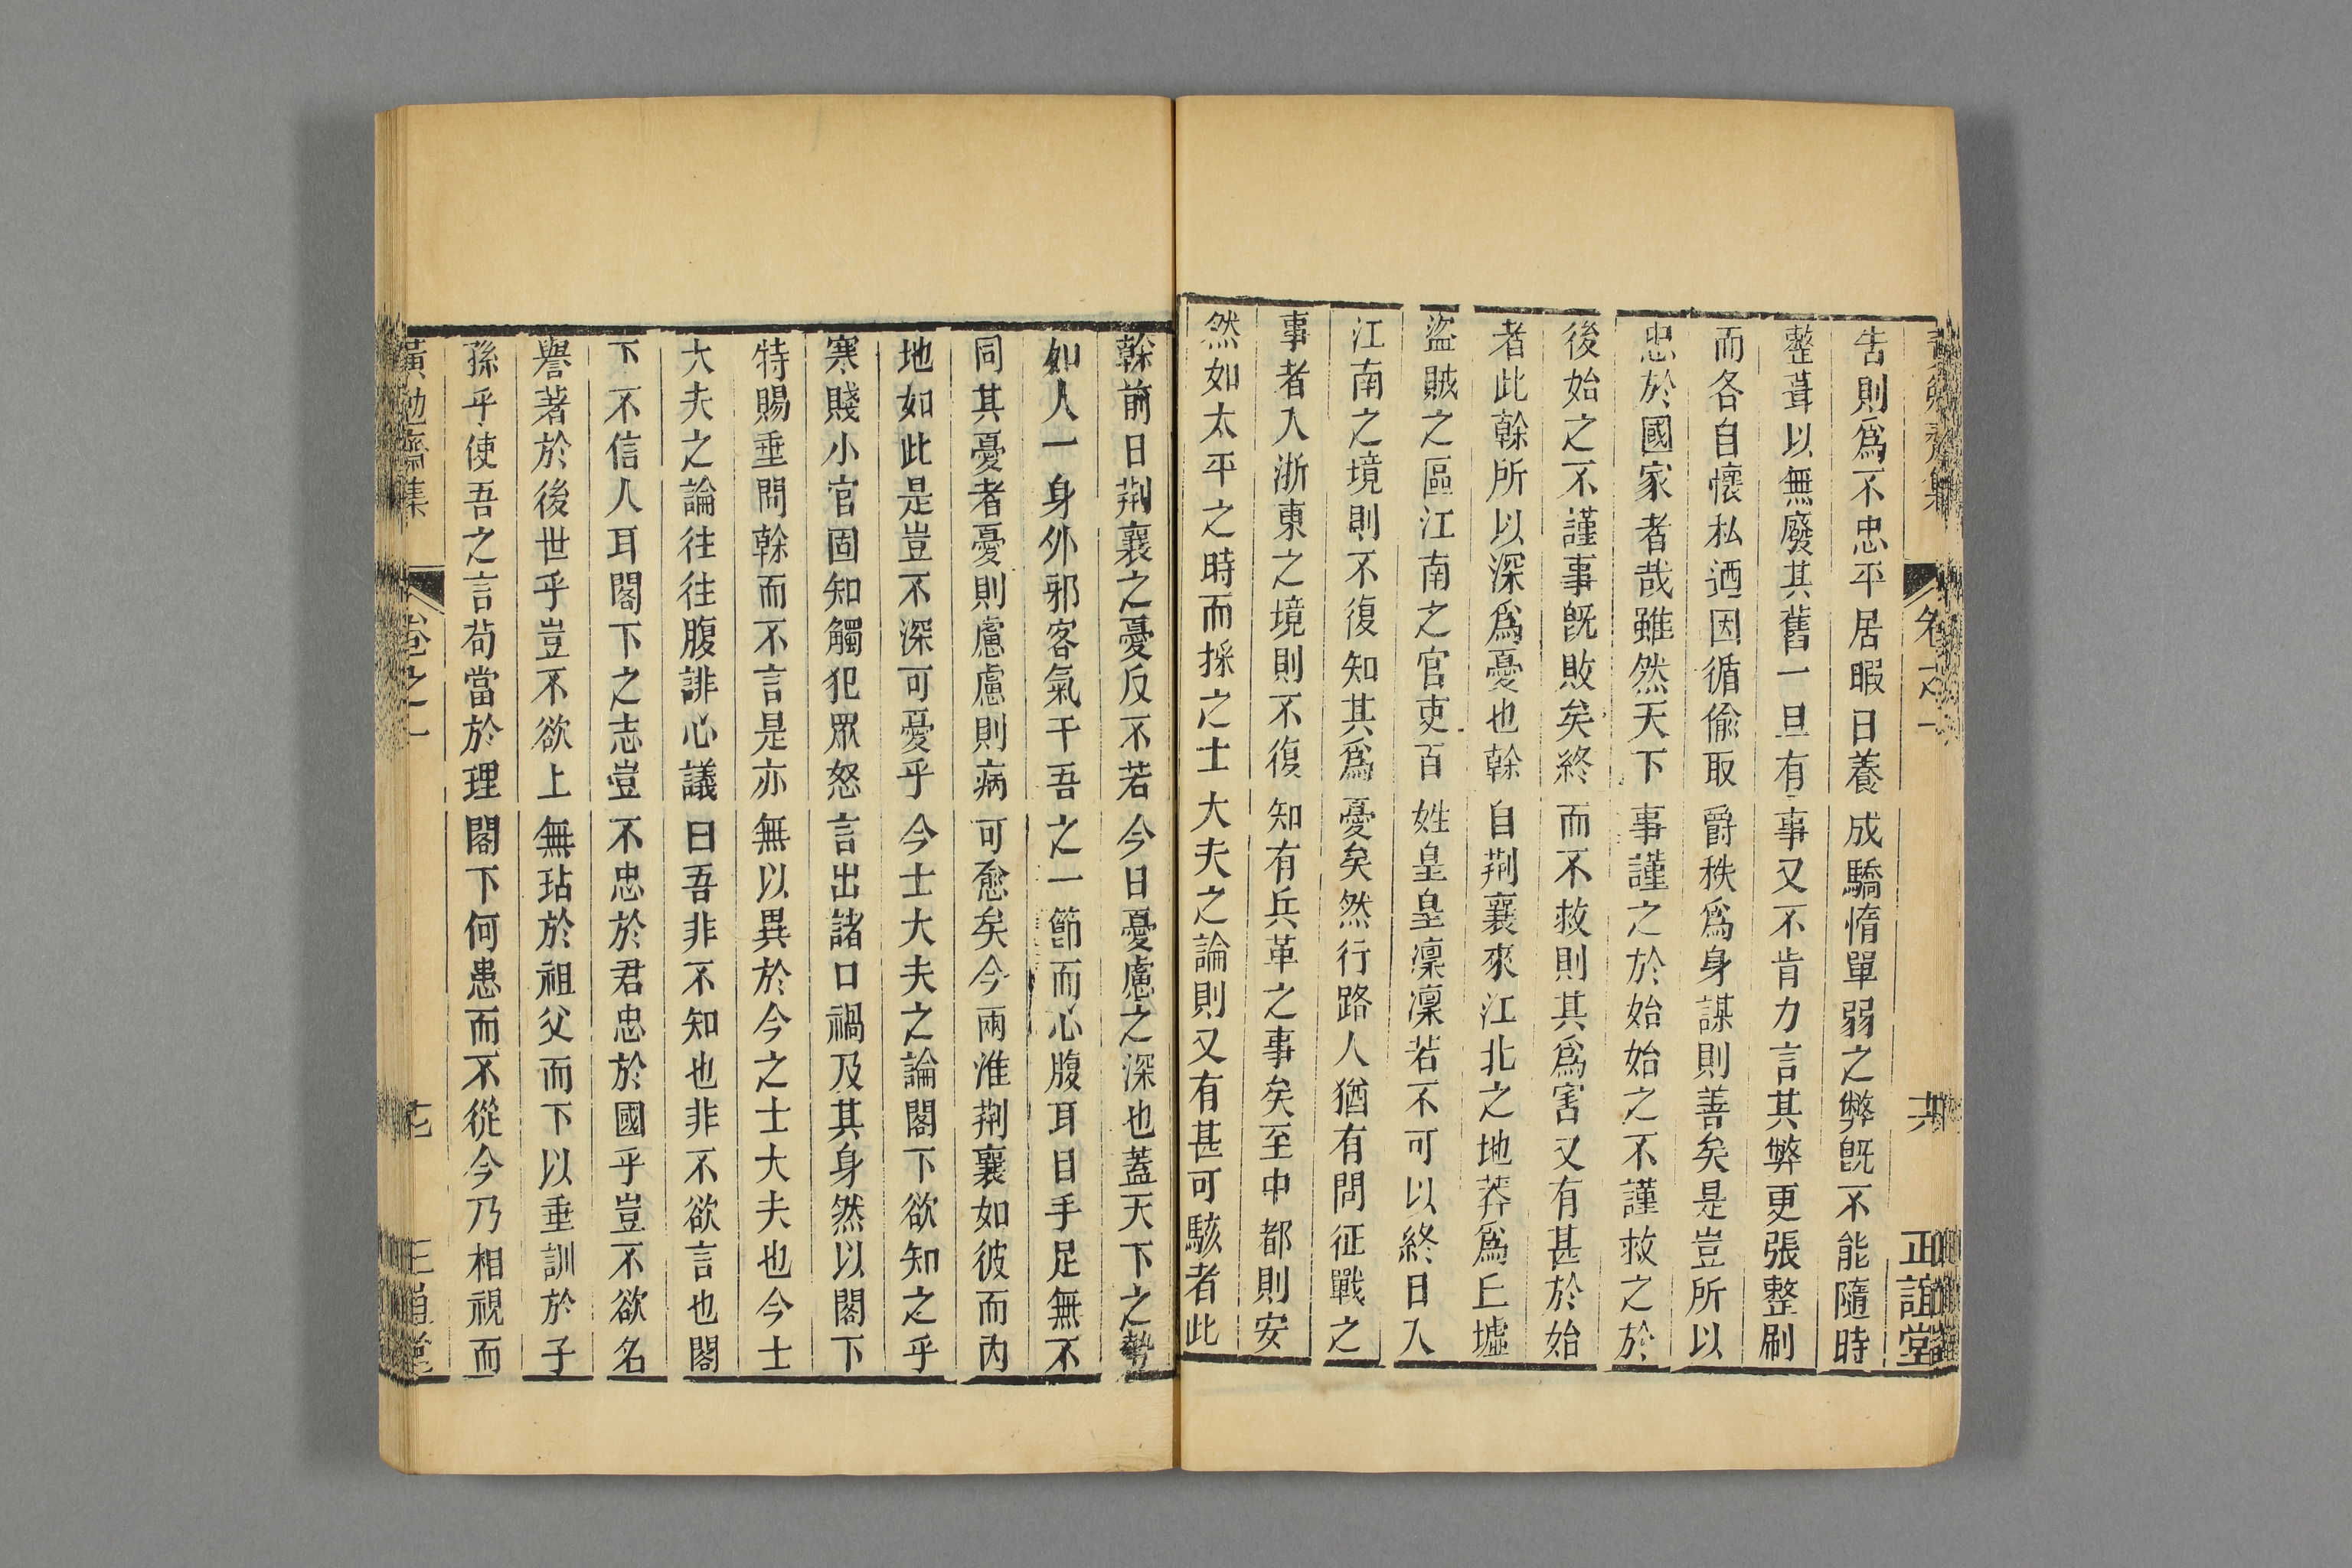 害則爲不忠平居暇日養成驕惰單弱之弊旣不能隨時
整葺以無廢其舊一旦有事又不肯力言其弊更張整刷
而各自懷私迺因循偷取爵秩爲身謀則善矣是豈所以
忠於國家者哉雖然天下事謹之於始始之不謹救之於
後始之不謹事旣敗矣終而不救則其爲害又有甚於始
者此榦所以深爲憂也榦自荆襄來江北之地莽爲丘墟
盜賊之區江南之官吏百姓皇皇凜凜若不可以終日入
江南之境則不復知其爲憂矣然行路人猶有問征戰之
事者入浙東之境則不復知有兵革之事矣至中都則安
然如太平之時而採之士大夫之論則又有甚可駭者此
榦前日荆襄之憂反不若今日憂慮之深也蓋天下之勢
如人一身外邪客氣干吾之一節而心腹耳目手足無不
同其憂者憂則慮慮則病可愈矣今兩淮荆襄如彼而內
地如此是豈不深可憂乎今士大夫之論閣下欲知之乎
寒賤小官固知觸犯眾怒言出諸口禍及其身然以閣下
特賜垂問榦而不言是亦無以異於今之士大夫也今士
大夫之論往往腹誹心議曰吾非不知也非不欲言也閣
下不信人耳閣下之志豈不忠於君忠於國乎豈不欲名
譽著於後世乎豈不欲上無玷於祖父而下以垂訓於子
孫乎使吾之言苟當於理閣下何患而不從今乃相視而
黃勉齋集 卷之一
正誼堂